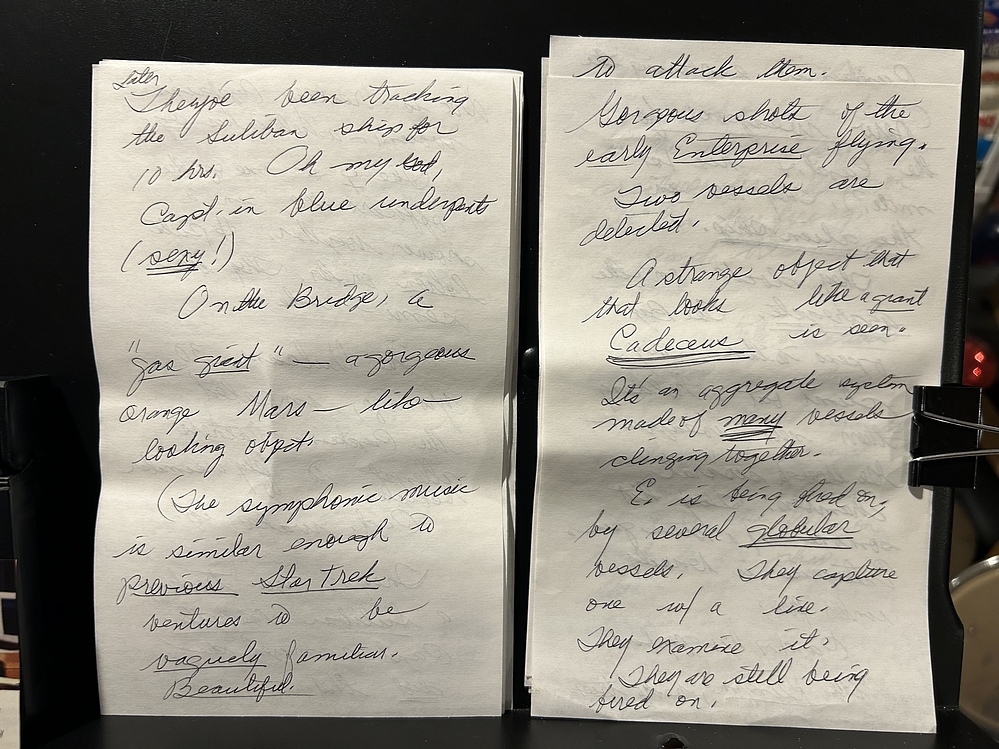 later
They've been tracking
the Suliban ship for
10 hrs. Oh my God,
Capt. in blue underpants
(sexy!)
On the Bridge, a
"gas giant" — a gorgeous
orange Mars — like
looking object.
(The symphonic music
is similar enough to
previous Star Trek
ventures to be
vaguely familiar.
Beautiful.
to attack them.
Gorgeous shots of the
early Enterprise flying.
Two vessels are
detected.
A strange object that
that looks like a giant
Cadeceus is seen.
It's an aggregate system
made of many vessels
clinging together.
E. is being fired on,
by several globular
vessels. They capture
one w/ a line.
They examine it.
They are still being
fired on.